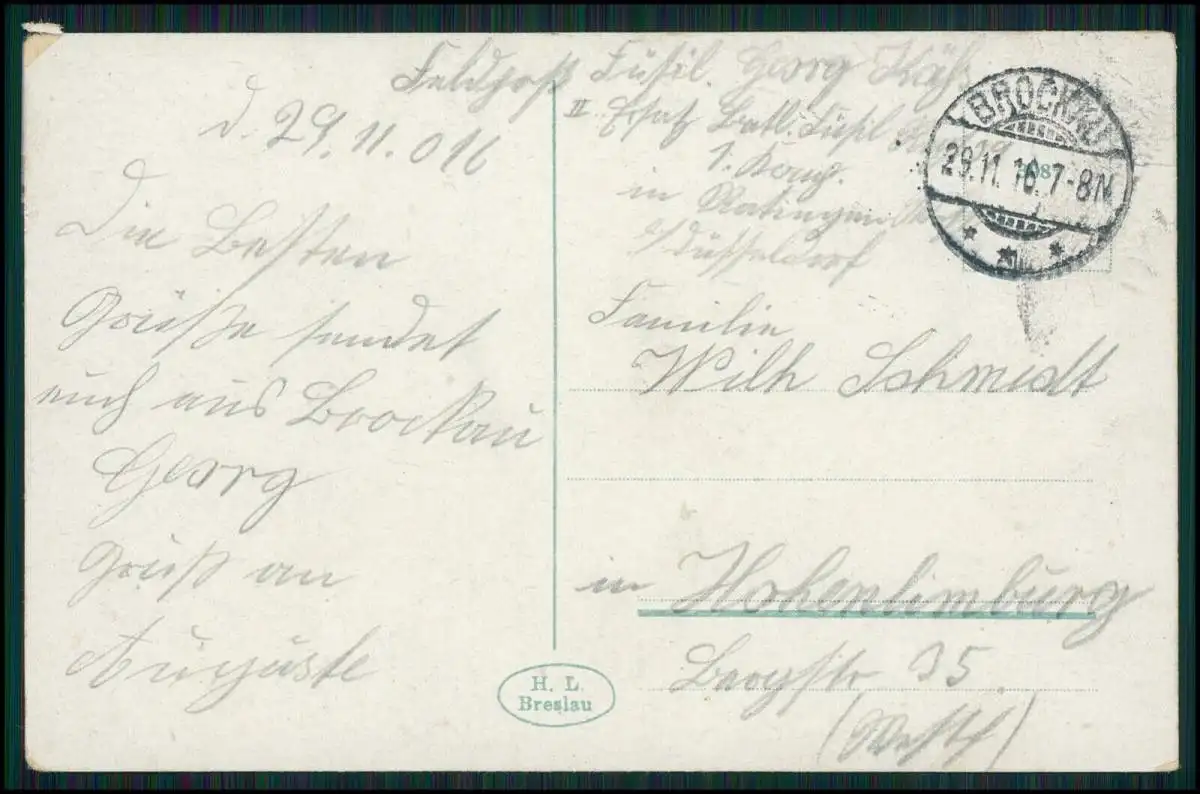 Feldpost Füsil. Georg
d. 29.11.016
II. Ersatz Batl. Füsil
1. Komp.
in Ratingen
b/ Düsseldorf
Die Besten
Grüße sendet
euch aus Brockau
Georg
Gruß an
Auguste
BROCKAU
29.11.16. 7-8N
Familie
Wilh Schmidt
in Hohenlimburg
Bergstr 35
(Westf)
H. L.
Breslau